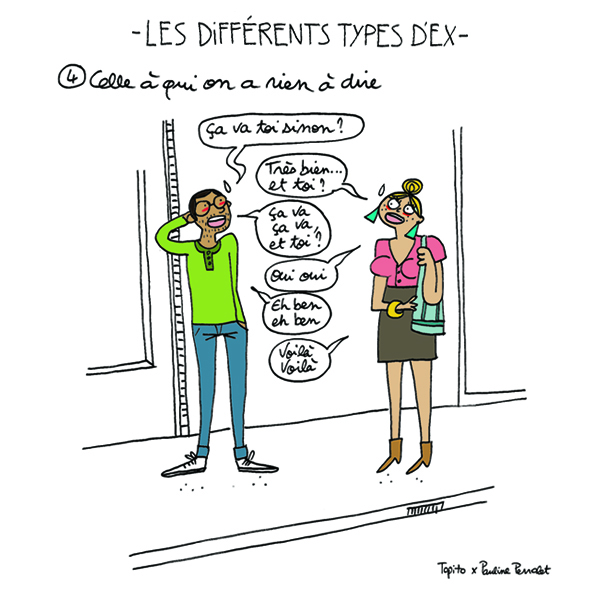 -LES DIFFÉRENTS TYPES D'EX-
④ Celle à qui on a rien à dire
Ça va toi sinon?
Très bien...
et toi?
Ça va
ça va,
et toi?
Oui oui
Eh ben
eh ben
Voilà
voilà
Topito x Pauline Perrolet